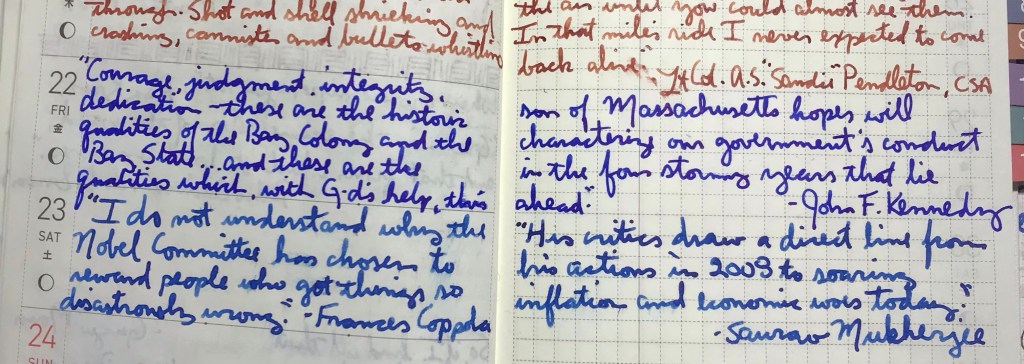 through. Shot and shell shrieking and
crashing, cannister and bullets whistling
22
FRI
金
"Courage, judgment, integrity,
dedication – these are the historic
qualities of the Bay Colony and the
Bay State...and these are the
qualities which, with G-d's help, this
23
SAT
土
"I do not understand why the
Nobel Committee has chosen to
reward people who got things so
disastrously wrong." -Frances Coppola
24
SUN
the air until you could almost see them.
In that miles ride I never expected to come
back alive." Lt Col. A.S. "Sandie" Pendleton, CSA
son of Massachusetts hopes will
characterize our government's conduct
in the four stormy years that lie
ahead." -John F. Kennedy
"His critics draw a direct line from
his actions in 2009 to soaring
inflation and economic woes today."
-Saurav Mukherjee